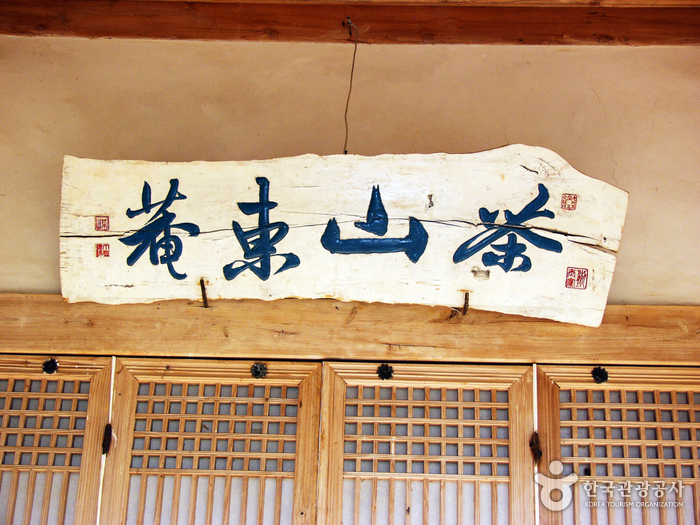 茶山東菴
한국관광공사
KOREA TOURISM ORGANIZATION